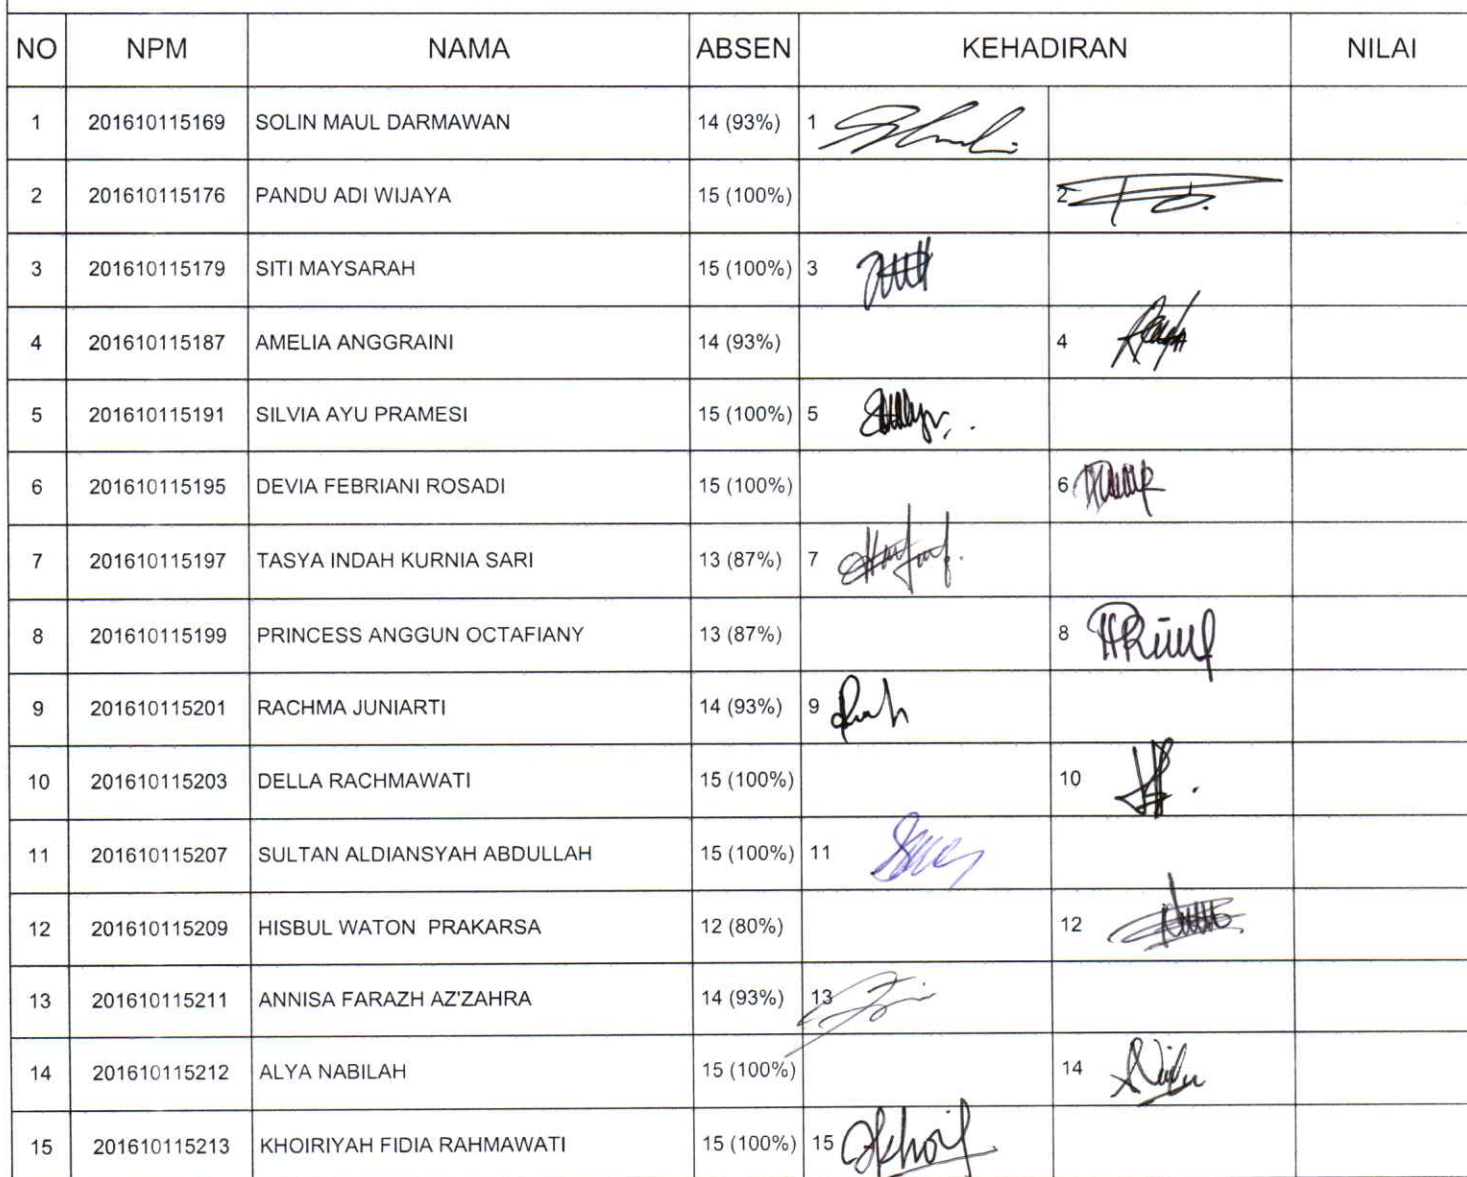 NO NPM NAMA ABSEN KEHADIRAN NILAI
1 201610115169 SOLIN MAUL DARMAWAN 14 (93%) 1
2 201610115176 PANDU ADI WIJAYA 15 (100%) 2
3 201610115179 SITI MAYSARAH 15 (100%) 3
4 201610115187 AMELIA ANGGRAINI 14 (93%) 4
5 201610115191 SILVIA AYU PRAMESI 15 (100%) 5
6 201610115195 DEVIA FEBRIANI ROSADI 15 (100%) 6
7 201610115197 TASYA INDAH KURNIA SARI 13 (87%) 7
8 201610115199 PRINCESS ANGGUN OCTAFIANY 13 (87%) 8
9 201610115201 RACHMA JUNIARTI 14 (93%) 9
10 201610115203 DELLA RACHMAWATI 15 (100%) 10
11 201610115207 SULTAN ALDIANSYAH ABDULLAH 15 (100%) 11
12 201610115209 HISBUL WATON PRAKARSA 12 (80%) 12
13 201610115211 ANNISA FARAZH AZ'ZAHRA 14 (93%) 13
14 201610115212 ALYA NABILAH 15 (100%) 14
15 201610115213 KHOIRIYAH FIDIA RAHMAWATI 15 (100%) 15